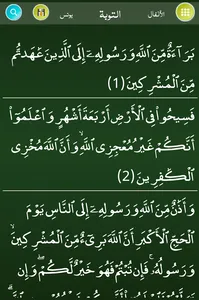 الأنفال
التوبة
يونس
بَرَآءَةٌ مِّنَ ٱللَّهِ وَرَسُولِهِۦٓ إِلَى ٱلَّذِينَ عَٰهَدتُّم
مِّنَ ٱلْمُشْرِكِينَ (1)
فَسِيحُوا۟ فِى ٱلْأَرْضِ أَرْبَعَةَ أَشْهُرٍ وَٱعْلَمُوٓا۟
أَنَّكُمْ غَيْرُ مُعْجِزِى ٱللَّهِ ۙ وَأَنَّ ٱللَّهَ مُخْزِى
ٱلْكَٰفِرِينَ (2)
وَأَذَٰنٌ مِّنَ ٱللَّهِ وَرَسُولِهِۦٓ إِلَى ٱلنَّاسِ يَوْمَ
ٱلْحَجِّ ٱلْأَكْبَرِ أَنَّ ٱللَّهَ بَرِىٓءٌ مِّنَ ٱلْمُشْرِكِينَ ۙ
وَرَسُولُهُۥ ۚ فَإِن تُبْتُمْ فَهُوَ خَيْرٌ لَّكُمْ ۖ وَإِن